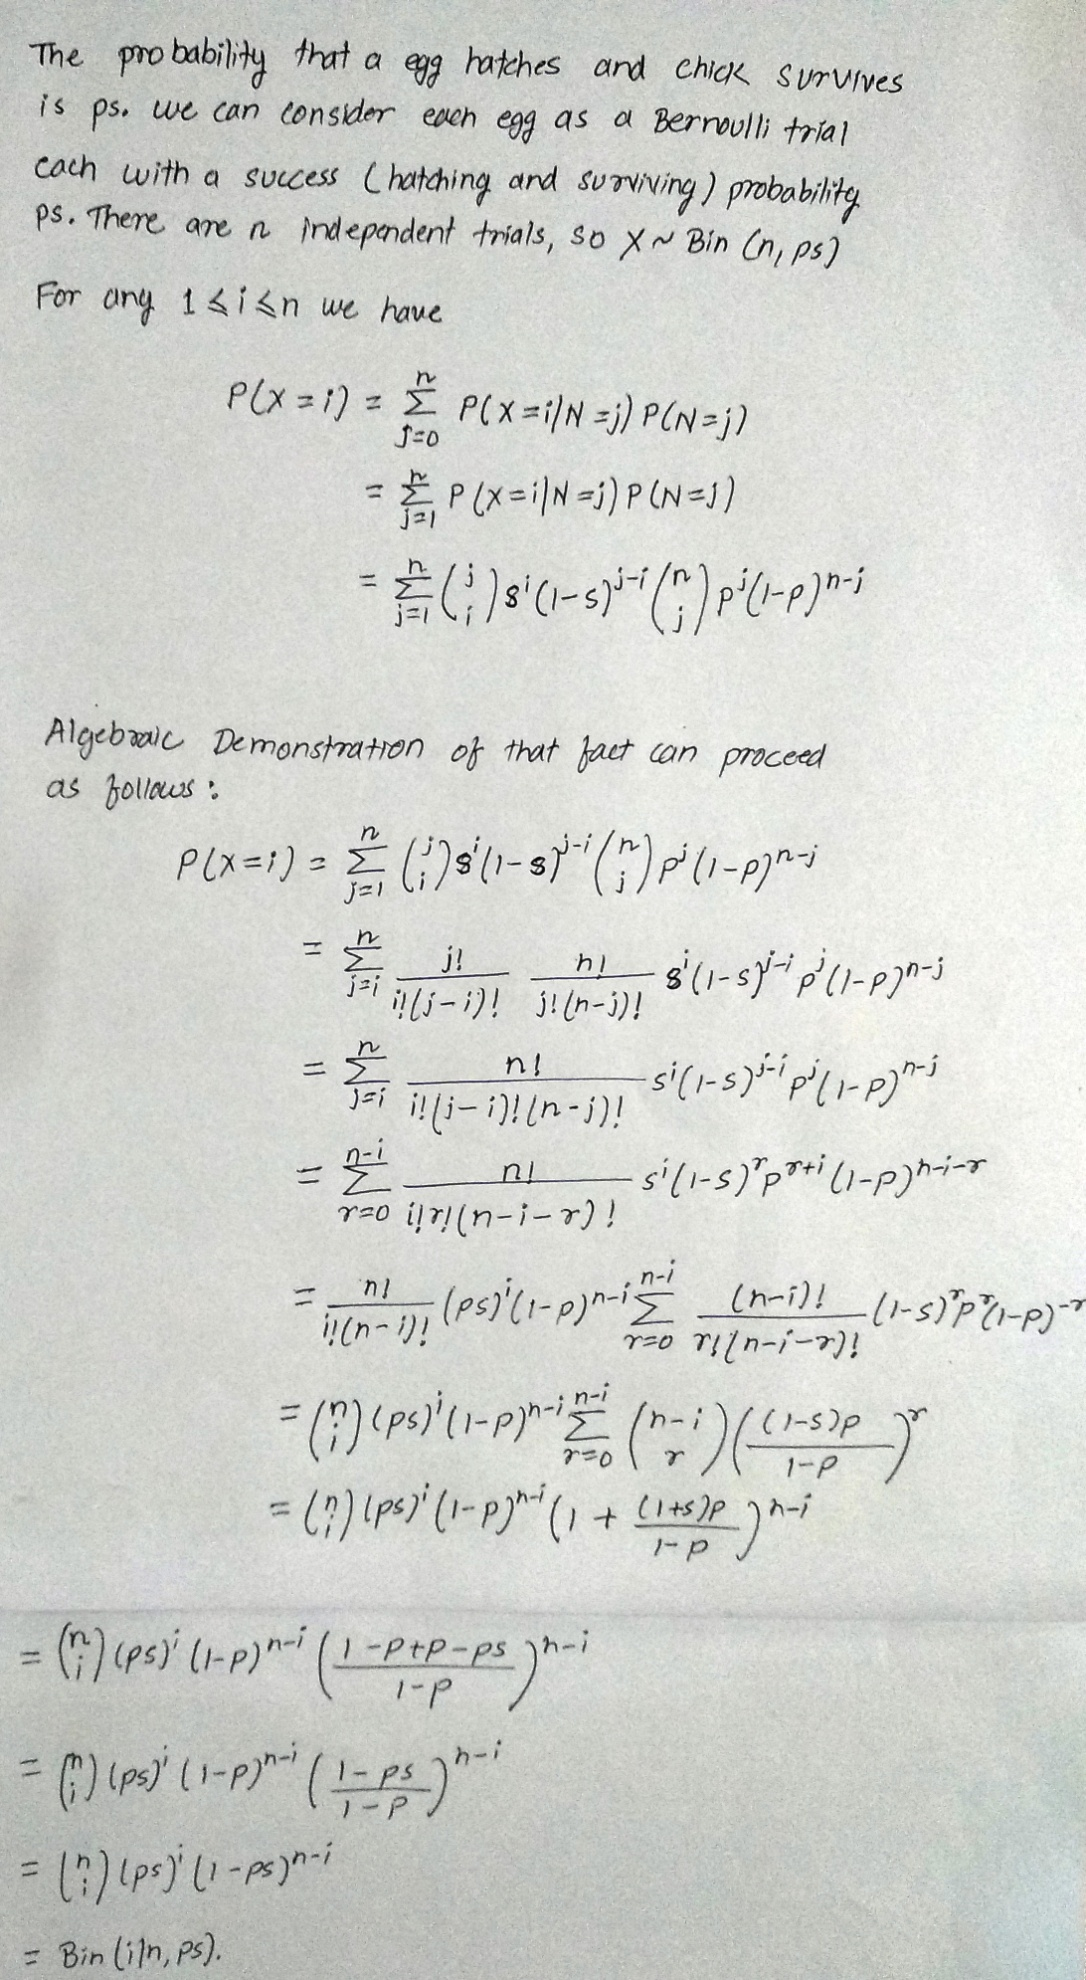 The probability that a egg hatches and chick survives
is ps. we can consider each egg as a Bernoulli trial
each with a success (hatching and surviving) probability
ps. There are n independent trials, so X ~ Bin (n, ps)
For any 1 ⩽ i ⩽ n we have
P(X = i) = \sum_{j=0}^{n} P(X = i|N = j) P(N = j)
= \sum_{j=1}^{n} P(X = i|N = j) P(N = j)
= \sum_{j=1}^{n} \binom{j}{i} s^i (1-s)^{j-i} \binom{n}{j} p^j (1-p)^{n-j}
Algebraic Demonstration of that fact can proceed
as follows :
P(X = i) = \sum_{j=1}^{n} \binom{j}{i} s^i (1-s)^{j-i} \binom{n}{j} p^j (1-p)^{n-j}
= \sum_{j=i}^{n} \frac{j!}{i!(j-i)!} \frac{n!}{j!(n-j)!} s^i (1-s)^{j-i} p^j (1-p)^{n-j}
= \sum_{j=i}^{n} \frac{n!}{i!(j-i)!(n-j)!} s^i (1-s)^{j-i} p^j (1-p)^{n-j}
= \sum_{r=0}^{n-i} \frac{n!}{i!r!(n-i-r)!} s^i (1-s)^r p^{r+i} (1-p)^{n-i-r}
= \frac{n!}{i!(n-i)!} (ps)^i (1-p)^{n-i} \sum_{r=0}^{n-i} \frac{(n-i)!}{r!(n-i-r)!} (1-s)^r p^r (1-p)^{-r}
= \binom{n}{i} (ps)^i (1-p)^{n-i} \sum_{r=0}^{n-i} \binom{n-i}{r} \left( \frac{(1-s)p}{1-p} \right)^r
= \binom{n}{i} (ps)^i (1-p)^{n-i} \left( 1 + \frac{(1+s)p}{1-p} \right)^{n-i}
= \binom{n}{i} (ps)^i (1-p)^{n-i} \left( \frac{1-p+p-ps}{1-p} \right)^{n-i}
= \binom{n}{i} (ps)^i (1-p)^{n-i} \left( \frac{1-ps}{1-p} \right)^{n-i}
= \binom{n}{i} (ps)^i (1-ps)^{n-i}
= Bin (i|n, ps).